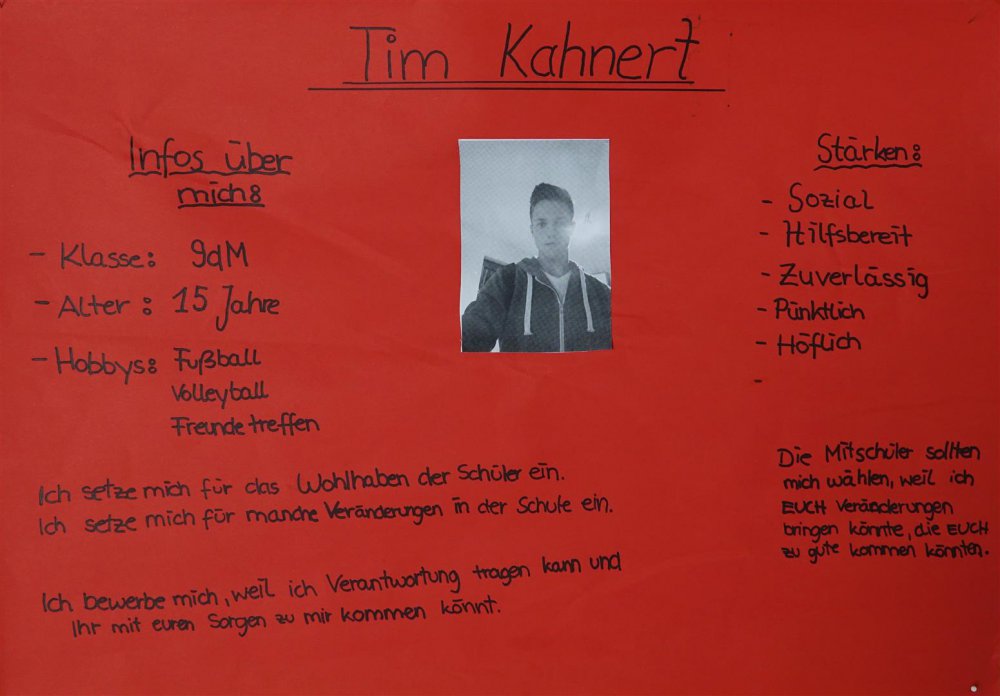 Tim Kahnert
Infos über
mich:
- Klasse: 9dM
- Alter: 15 Jahre
- Hobbys: Fußball
Volleyball
Freunde treffen
Stärken:
- Sozial
- Hilfsbereit
- Zuverlässig
- Pünktlich
- Höflich
-
Ich setze mich für das Wohlhaben der Schüler ein.
Ich setze mich für manche Veränderungen in der Schule ein.
Ich bewerbe mich, weil ich Verantwortung tragen kann und
Ihr mit euren Sorgen zu mir kommen könnt.
Die Mitschüler sollten
mich wählen, weil ich
EUCH Veränderungen
bringen könnte, die EUCH
zu gute kommen könnten.